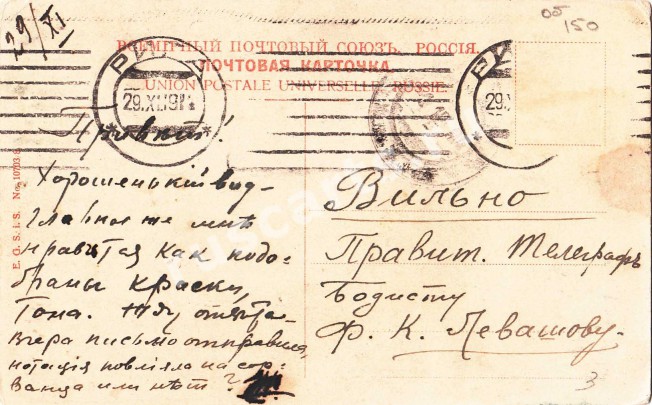 29/XI
05
150
ВСЕМІРНЫЙ ПОЧТОВЫЙ СОЮЗЪ. РОССІЯ.
ПОЧТОВАЯ КАРТОЧКА
UNION POSTALE UNIVERSELLE. RUSSIE.
29.XI.191
29.X
E. O. S. I. S. No.
Привѣтъ!
Хорошенькій вид-
Главное же мнѣ
нравится как подо-
браны краски,
Тона. Жду отвѣта
Вчера письмо отправила,
нотація повліяла на
или нѣт?
Вильно
Правит. Телеграфъ
Бодисту
Ф. К. Левашову.
3